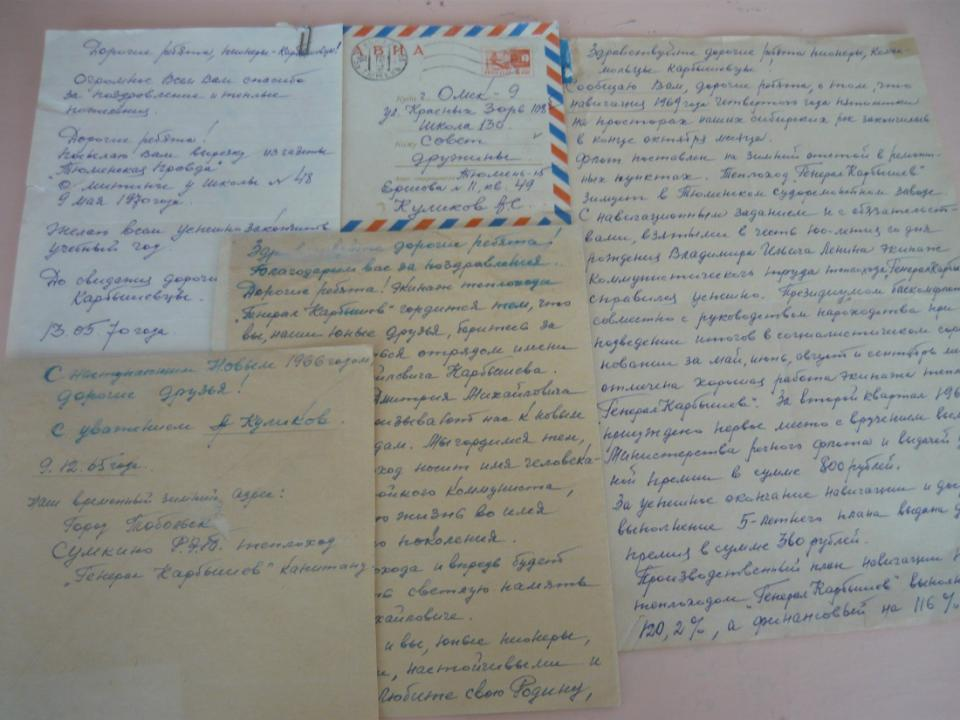 Дорогие ребята, пионеры-Карбышевцы!
Огромное Всем Вам спасибо
за поздравление и теплые
пожелания
Дорогие ребята!
Посылаю Вам вырезку из газеты
"Тюменская Правда"
О митинге у школы № 48
9 мая 1970 года.
Желаю всем успешно закончить
учебный год
До свидания дорогие
Карбышевцы.
13.05.70 года
АВИА
Куда г. Омск-9
ул. Красных Зорь
Школа 130.
Кому Совет
дружины
Тюмень-15
Ершова № 11, кв. 49
Куликов А С.
Здравствуйте дорогие ребята пионеры, Комсо-
мольцы Карбышевцы
Сообщаю Вам, дорогие ребята, о том, что
навигация 1969 года четвертого года пятилетки
на просторах наших сибирских рек закончилась
в конце октября месяца.
Флот поставлен на зимний отстой в ремонт-
ных пунктах. Теплоход "Генерал Карбышев"
зимует в Тюменском судоремонтном заводе
С навигационным заданием и с обязательст-
вами, взятыми в честь 100-летия со дня
рождения Владимира Ильича Ленина экипаж
Коммунистического труда теплохода "Генерал Карбы
справился успешно. Президиумом баскомфлота
совместно с руководством пароходства при
подведении итогов в социалистическом сорев
новании за май, июнь, август и сентябрь ме
отмечена хорошая работа экипажа тепло
"Генерал Карбышев". За второй квартал 196
присуждено первое место с вручением вым
Министерства речного флота и выдачей д
ной премии в сумме 800 рублей.
За успешное окончание навигации и дос
выполнение 5-летнего плана выдана д
премия в сумме 360 рублей.
Производственный план навигации
теплоходом "Генерал Карбышев" выполн
120,2%, а финансовый на 116%
Здравствуйте дорогие ребята!
Благодарим вас за поздравления.
Дорогие ребята! Экипаж теплохода
"Генерал Карбышев" гордится тем, что
вы, наши юные друзья, боритесь за
ься отрядом имени
йловича Карбышева.
Дмитрия Михайловича
ризывают нас к новым
дам. Мы гордимся тем,
ход носит имя человека-
ойкого коммуниста,
ю жизнь во имя
о поколения.
охода и впредь будет
ть светлую память
хайловиче.
и вы, юные пионеры,
и, настойчивыми и
Любите свою Родину,
С наступающим Новым 1966 годом
дорогие друзья!
С уважением А Куликов.
9.12.65 года.
Наш временный зимний адрес:
Город Тобольск
Сумкино Р.Э.Б. теплоход
"Генерал Карбышев" капитану